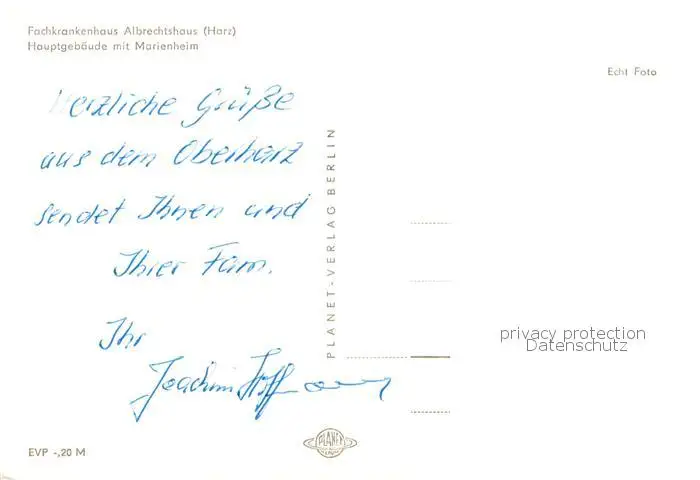 Fachkrankenhaus Albrechtshaus (Harz)
Hauptgebäude mit Marienheim
Echt Foto
Herzliche Grüße
aus dem Oberharz
sendet Ihnen und
Ihrer Fam.
Ihr
Joachim Hoffmann
PLANET-VERLAG BERLIN
privacy protection
Datenschutz
PLANET
EVP -,20 M